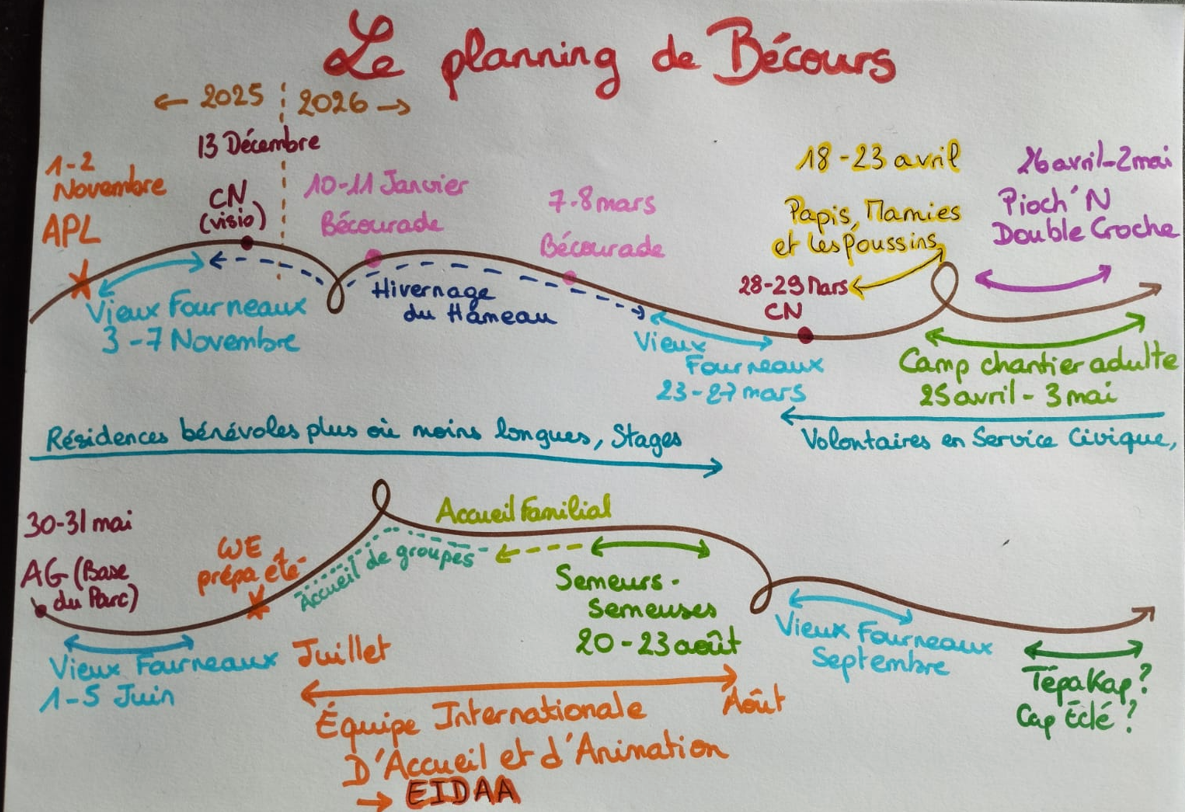 Le planning de Bécours
← 2025 2026 →
1-2
Novembre
APL
13 Décembre
CN
(visio)
10-11 Janvier
Bécourade
7-8 mars
Bécourade
18-23 avril
Papis, Mamies
et les poussins
26 avril-2 mai
Pioch'N
Double Croche
Vieux Fourneaux
3-7 Novembre
Hivernage
du Hameau
28-29 Mars
CN
Vieux
Fourneaux
23-27 mars
Camp chantier adulte
25 avril - 3 mai
Résidences bénévoles plus où moins longues, Stages
Volontaires en Service Civique,
30-31 mai
AG (Base
du Parc)
WE
prépa été
Accueil de groupes
Accueil Familial
Semeurs-
Semeuses
20-23 août
Vieux Fourneaux
1-5 Juin
Vieux Fourneaux
Septembre
TépaKap?
Cap Éclé?
Juillet
Août
Équipe Internationale
D'Accueil et d'Animation
→ EIDAA